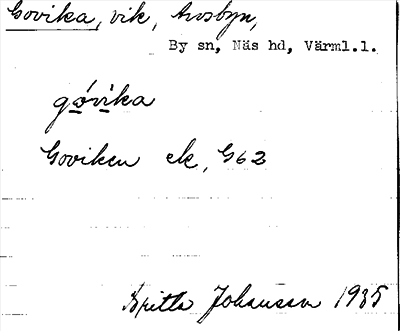 Govika, vik, Avsbyn,
By sn, Näs hd, Värml.l.
góvika
Goviken ek, G62
Britta Johansson 1935